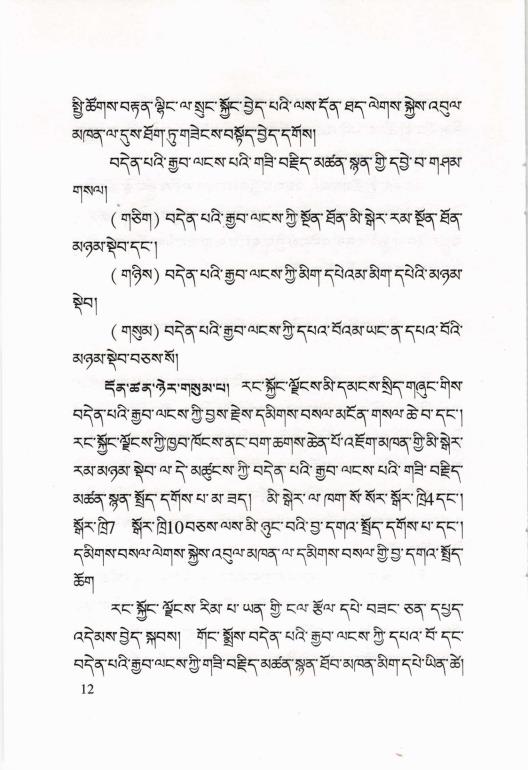 སྤྱི་ཚོགས་བརྟན་ལྷིང་ལ་སྲུང་སྐྱོང་བྱེད་པའི་ལས་དོན་ཐད་ལེགས་སྐྱེས་འབུལ་
མཁན་ལ་དུས་ཐོག་ཏུ་གཟེངས་བསྟོད་བྱེད་དགོས།
བདེན་པའི་རྒྱབ་ལངས་པའི་གཟི་བརྗིད་མཚན་སྙན་གྱི་དབྱེ་བ་གཤམ་
གསལ།
(གཅིག) བདེན་པའི་རྒྱབ་ལངས་ཀྱི་སྔོན་ཐོན་མི་སྒེར་རམ་སྔོན་ཐོན་
མཉམ་སྡེབ་དང་།
(གཉིས) བདེན་པའི་རྒྱབ་ལངས་ཀྱི་མིག་དཔེའམ་མིག་དཔེའི་མཉམ་
སྡེབ།
(གསུམ) བདེན་པའི་རྒྱབ་ལངས་ཀྱི་དཔའ་བོའམ་ཡང་ན་དཔའ་བོའི་
མཉམ་སྡེབ་བཅས་སོ།
དོན་ཚན་ཉེར་གསུམ་པ། རང་སྐྱོང་ལྗོངས་མི་དམངས་སྲིད་གཞུང་གིས་
བདེན་པའི་རྒྱབ་ལངས་ཀྱི་བྱས་རྗེས་དམིགས་བསལ་མངོན་གསལ་ཆེ་བ་དང་།
རང་སྐྱོང་ལྗོངས་ཀྱི་ཁྱབ་ཁོངས་ནང་བག་ཆགས་ཆེན་པོ་འཇོག་མཁན་གྱི་མི་སྒེར་
རམ་མཉམ་སྡེབ་ལ་དེ་མཚུངས་ཀྱི་བདེན་པའི་རྒྱབ་ལངས་པའི་གཟི་བརྗིད་
མཚན་སྙན་སྤྲོད་དགོས་པ་མ་ཟད། མི་སྒེར་ལ་ཁག་སོ་སོར་སྒོར་ཁྲི4དང་།
སྒོར་ཁྲི7 སྒོར་ཁྲི10བཅས་ལས་མི་ཉུང་བའི་བྱ་དགའ་སྤྲོད་དགོས་པ་དང་།
དམིགས་བསལ་ལེགས་སྐྱེས་འབུལ་མཁན་ལ་དམིགས་བསལ་གྱི་བྱ་དགའ་སྤྲོད་
ཆོག
རང་སྐྱོང་ལྗོངས་རིམ་པ་ཡན་གྱི་ངལ་རྩོལ་དཔེ་བཟང་ཅན་དཔྱད་
འདེམས་བྱེད་སྐབས། གོང་སྨྲོས་བདེན་པའི་རྒྱབ་ལངས་ཀྱི་དཔའ་བོ་དང་
བདེན་པའི་རྒྱབ་ལངས་ཀྱི་གཟི་བརྗིད་མཚན་སྙན་ཐོབ་མཁན་མིག་དཔེ་ཡིན་ཚེ།
12